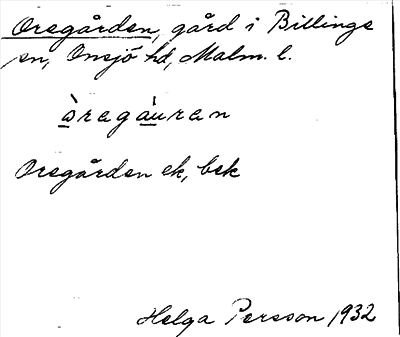 Oregården, gård i Billinge
sn, Onsjö hd, Malm. l.
òregàuran
Oregården ek, bek
Helga Persson 1932